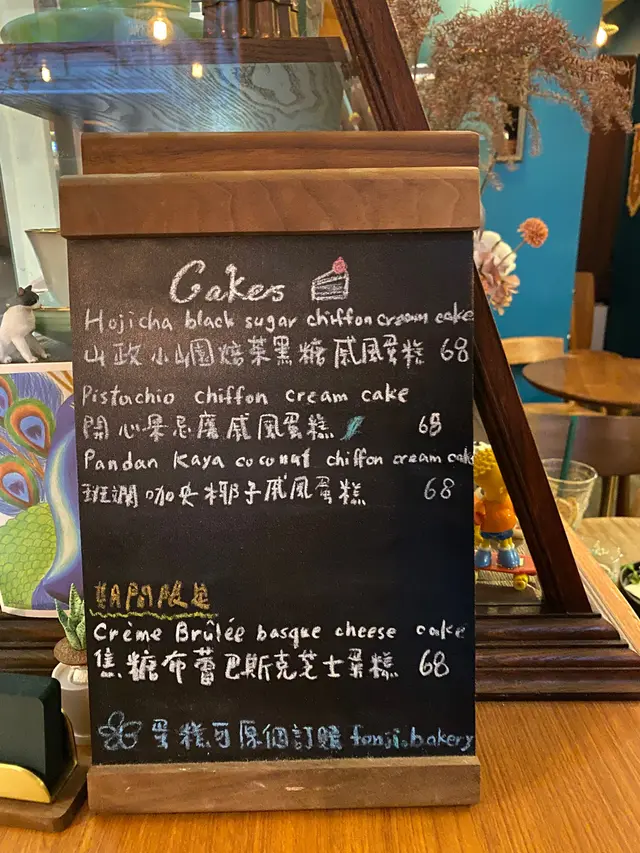 Cakes
Hojicha black sugar chiffon cream cake
山政小山園焙茶黑糖戚風蛋糕 68
Pistachio chiffon cream cake
開心果忌廉戚風蛋糕 68
Pandan Kaya coconut chiffon cream cake
班瀾咖央椰子戚風蛋糕 68
Crème Brûlée basque cheese cake
焦糖布蕾巴斯克芝士蛋糕 68
蛋糕可原個訂購 fonji.bakery